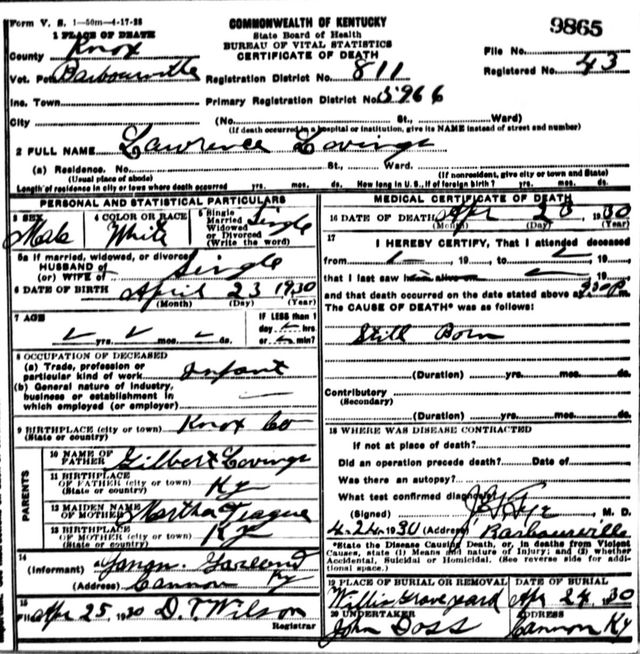 Form V. S. 1—50m—4-17-28
COMMONWEALTH OF KENTUCKY
State Board of Health
BUREAU OF VITAL STATISTICS
CERTIFICATE OF DEATH
9865
1 PLACE OF DEATH
County Knox
File No.
Vot. Barbourville
Registration District No. 811
Registered No. 43
Inc. Town
Primary Registration District No. 5966
City
(No. St., Ward)
(If death occurred in a hospital or institution, give its NAME instead of street and number)
2 FULL NAME Lawrence Lovings
(a) Residence. No. St., Ward.
(Usual place of abode)
(If nonresident, give city or town and State)
Length of residence in city or town where death occurred yrs. mos. ds. How long in U. S., if of foreign birth? yrs. mos. ds.
PERSONAL AND STATISTICAL PARTICULARS
3 SEX
Male
4 COLOR OR RACE
White
5 Single
Married
Widowed
or Divorced
(Write the word)
Single
5a If married, widowed, or divorced
HUSBAND of
(or) WIFE of Single
6 DATE OF BIRTH April 23 1930
(Month) (Day) (Year)
7 AGE
yrs. mos. ds.
If LESS than 1
day hrs
or min?
8 OCCUPATION OF DECEASED
(a) Trade, profession or
particular kind of work Infant
(b) General nature of industry,
business or establishment in
which employed (or employer)
9 BIRTHPLACE (city or town) Knox Co
(State or country)
PARENTS
10 NAME OF
FATHER Gilbert Lovings
11 BIRTHPLACE
OF FATHER (city or town)
(State or country) Ky
12 MAIDEN NAME
OF MOTHER Martha Teague
13 BIRTHPLACE
OF MOTHER (city or town)
(State or country) Ky
14
(Informant) Garland
(Address) Cannon Ky
15
Apr 25, 1930 D. T. Wilson
Registrar
MEDICAL CERTIFICATE OF DEATH
16 DATE OF DEATH Apr 23 1930
(Month) (Day) (Year)
17
I HEREBY CERTIFY, That I attended deceased
from 19 to 19
that I last saw h alive on 19
and that death occurred on the date stated above at
The CAUSE OF DEATH* was as follows:
Still Born
(Duration) yrs. mos. ds.
Contributory
(Secondary)
(Duration) yrs. mos. ds.
18 WHERE WAS DISEASE CONTRACTED
If not at place of death?
Did an operation precede death? Date of
Was there an autopsy?
What test confirmed diagnosis?
(Signed) M. D.
4-24-1930 (Address) Barbourville
*State the Disease Causing Death, or, in deaths from Violent
Causes, state (1) Means and nature of Injury; and (2) whether
Accidental, Suicidal or Homicidal. (See reverse side for addi-
tional space.)
19 PLACE OF BURIAL OR REMOVAL
Willis Graveyard
DATE OF BURIAL
Apr 24, 1930
20 UNDERTAKER
John Doss
ADDRESS
Cannon Ky